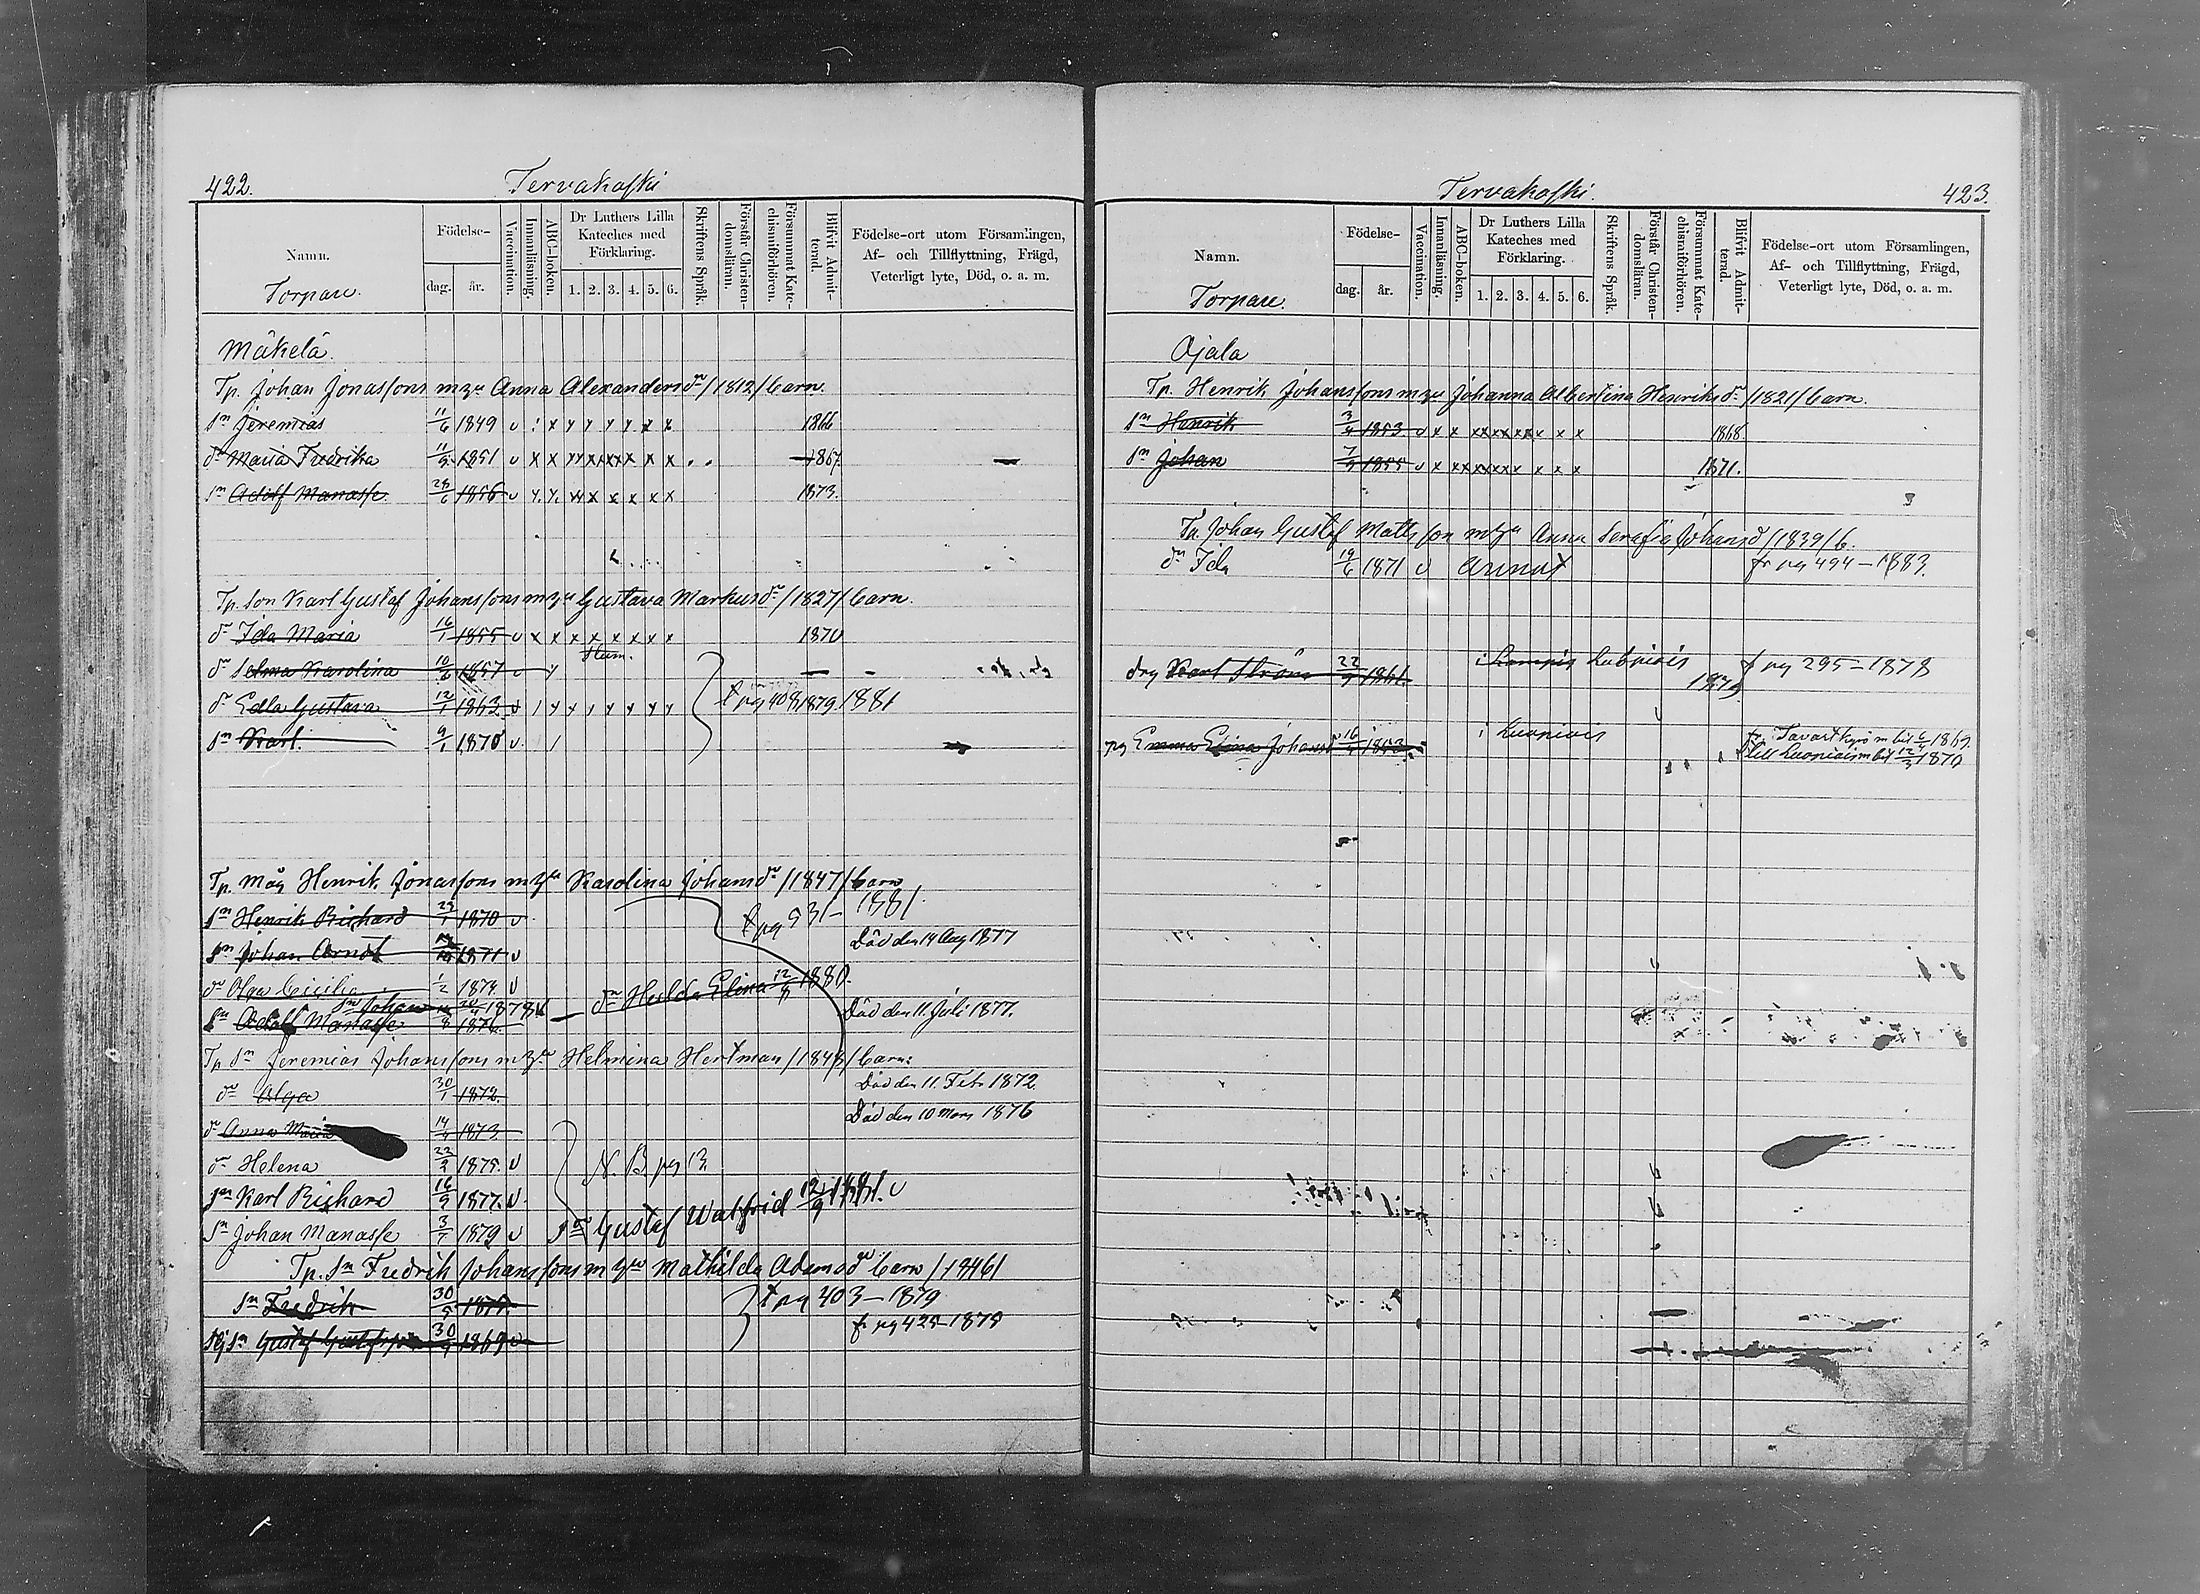 422.
Tervakoski
Namn.
Torpare.
Födelse-
dag.
år.
Vaccination.
Innanläsning.
ABC-boken.
Dr Luthers Lilla
Kateches med
Förklaring.
1. 2. 3. 4. 5. 6.
Skriftens Språk.
Förstår Christen-
domsläran.
Försummat Kate-
chismiförhören.
Blifvit Admit-
terad.
Födelse-ort utom Församlingen,
Af- och Tillflyttning, Frägd,
Veterligt lyte, Död, o. a. m.
Mäkelä
Tp. Johan Jonassons m hu Anna Alexandersdr /1812/ barn.
sn Jeremias 11/6 1849 v 1866
dr Maria Fredrika 11/9 1851 v x x 1867
sn Adolf Manasse 28/6 1856 v 1873.
Tp. son Karl Gustaf Johanssons m hu Gustava Markusdr /1827/ barn.
dr Ida Maria 16/1 1855 v x x x x x x x x 1870
dr Selma Karolina 10/6 1857 v
dr Edla Gustava 12/1 1863 t pg 408 1879 1881
sn Karl. 9/1 1870 v
Tp. måg Henrik Jonassons m hu Karolina Johansdr /1847/ barn
sn Henrik Richard 29/1 1870 v t pg 531 - 1881.
sn Johan Arndt 1871 v Död den 14 Aug 1877
dr Olga Cicilia 1/2 1874 v dr Hulda Elina 12/8 1880.
sn Johan 20/4 1878 v
sn Adolf Manasse 1876 Död den 11 Juli 1877.
Tp sn Jeremias Johanssons m hu Helmina Hertman /1848/ barn:
dr Olga 30/1 1872. Död den 11 Feb 1872
dr Anna Maria 14/4 1873 Död den 10 Mars 1876
dr Helena 22/2 1875. v N. B. pg 13.
sn Karl Richard 16/9 1877. v
sn Johan Manasse 3/7 1879 v sn Gustaf Walfrid 12/9 1881. v
Tp. sn Fredrik Johanssons m hu Mathilda Adamsdr barn /1846/
sn Fredrik 30/5 t pg 403 - 1879
Gustaf Gustafsson 30/9 1869 v fr pg 425 - 1875
Tervakoski.
423.
Namn.
Torpare.
Födelse-
dag.
år.
Vaccination.
Innanläsning.
ABC-boken.
Dr Luthers Lilla
Kateches med
Förklaring.
1. 2. 3. 4. 5. 6.
Skriftens Språk.
Förstår Christen-
domsläran.
Försummat Kate-
chismiförhören.
Blifvit Admit-
terad.
Födelse-ort utom Församlingen,
Af- och Tillflyttning, Frägd,
Veterligt lyte, Död, o. a. m.
Ojala
Tp. Henrik Johanssons m hu Johanna Albertina Henriksdr /1821/ barn.
sn Henrik 3/4 1853 v x x 1868
sn Johan 7/9 1855 v 1871.
Tp. Johan Gustaf Matsson m hu Anna Serafia Johansd /1839/ b.
dr Ida 19/6 1871 v fr pg 494 - 1883.
drg Karl Ström 22/7 1861. i Luopiois 1879 f pg 295 - 1878
pg Emma Elina Johansdr 16/4 1853 i Luopiois fr. Tavastkyro m bet 6/4 1869.
till Luopiois m bet 12/3 1870